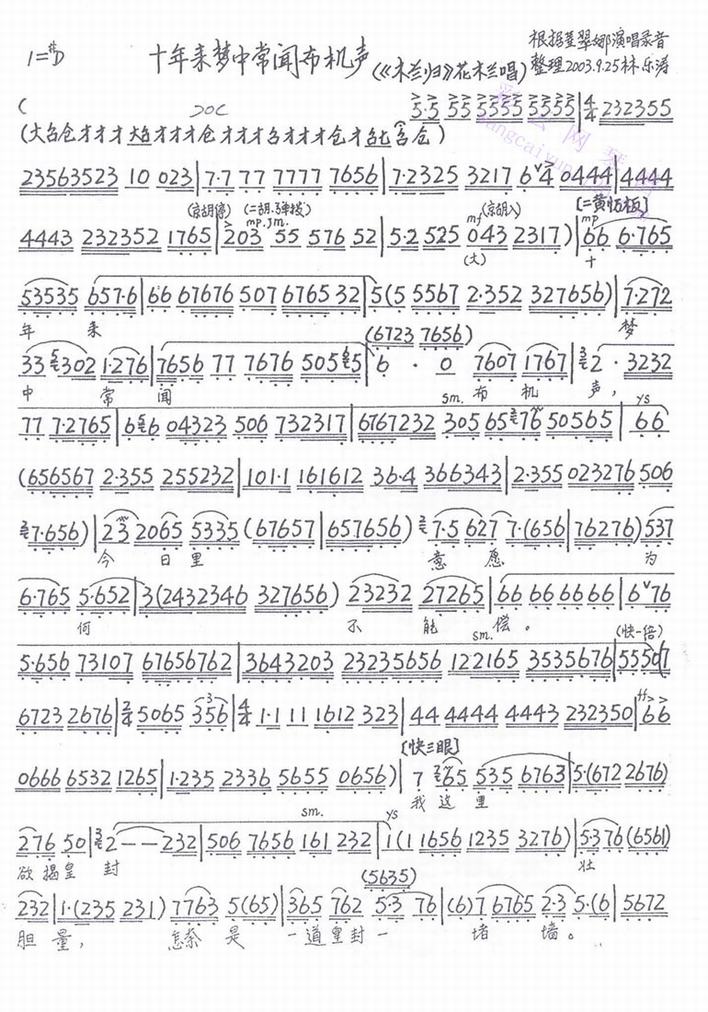 1=#D 十年来梦中常闻布机声 (《木兰归》花木兰唱) 根据董翠娜演唱录音
整理2003.9.25林乐涛
( >o< 5·5 55 5555 5555|4/4 232355
23563523 10 023|7·7 77 7777 7656|7·2325 3217 6 4 0444|4444
(京胡停) (二胡、弹拨) mp.jm. mf (京胡入) [二黄慢板] mp
4443 232352 1765|203 55 576 52|5·2 525 043 2317)|66 6·765
(大) 十
53535 657·6|66 67676 507 6765 32|5(5 5567 2·352 327656)|7·272
年 来 梦
(6723 7656)
33 302 1·276|7656 77 7676 505 5|6 · 0 7607 1767|2 · 3232
中 常 闻 sm. 布 机 声, ys
77 7·2765|6 6 04323 506 732317|6767232 305 65 76 50565|66
(656567 2·355 255232|101·1 161612 36·4 366343|2·355 023276 506
7·656)|23 2065 5335 (67657|657656) 7·5 627 7·(656|76276)537
今 日 里 意 愿 为
6·765 5·652|3(2432346 327656) 23232 27265|66 66 66 66|6 76
何 不 能 偿。 sm. (快一倍)
5·656 73107 67656762|3643203 23235656 122165 3535676|55507
6723 2676|2/4 5065 356|4/4 1·1 11 1612 323|44 4444 4443 232350|66
[快三眼]
0666 6532 1265|1·235 2336 5655 0656)|7 65 535 6763|5·(672 2676)
我 这 里
sm. ys
276 50|2 - - 232|506 7656 161 232|1(1 1656 1235 3276)|5·376(6561)
欲 揭 皇 封 壮
(5635)
232|1·(235 231) 7763 5(65)|365 762 5·3 76|(6)7 6765 2·3 5·(6|5672
胆 量, 怎奈 是 一道皇封一 堵 墙。